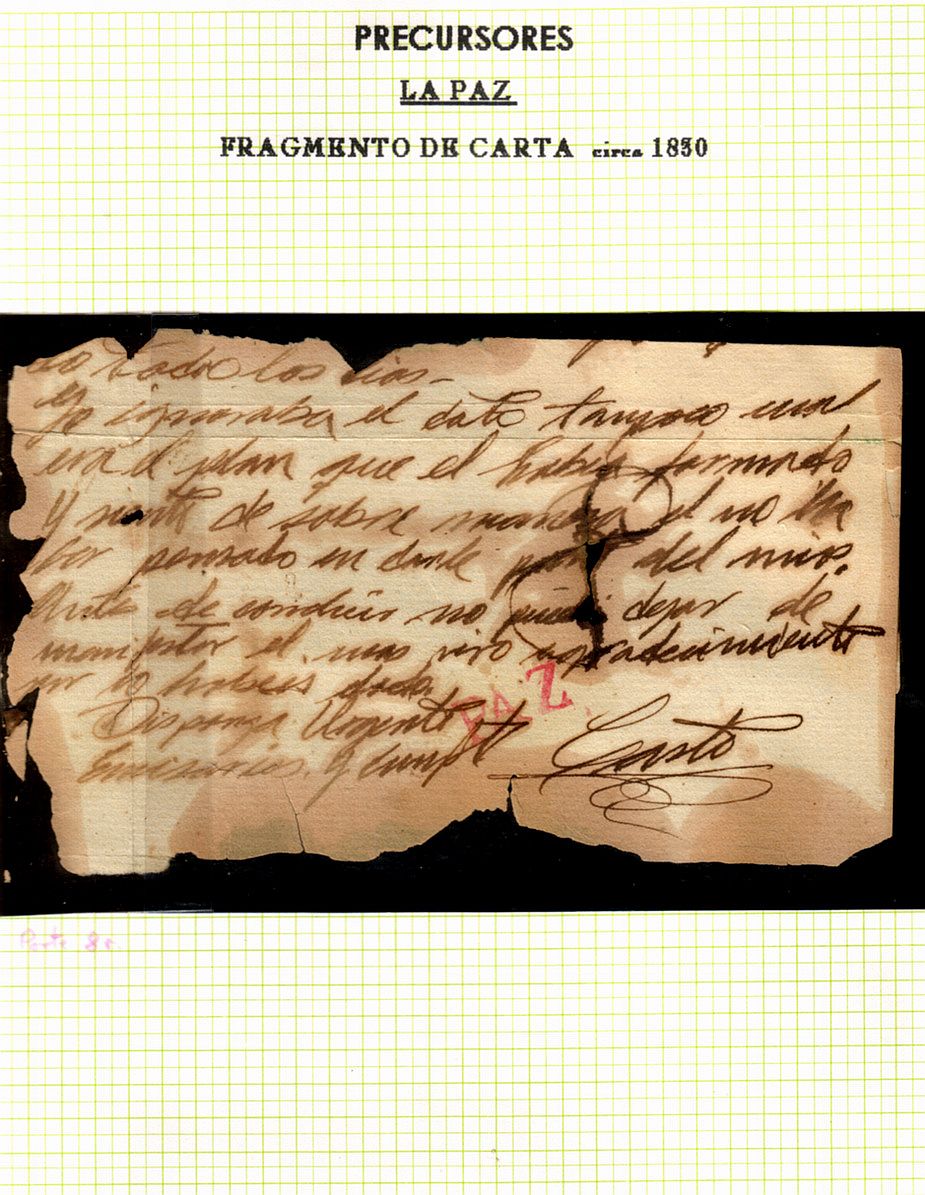 PRECURSORES
LA PAZ
FRAGMENTO DE CARTA circa 1830
todos los dias-
yo ignoraba el dato tampoco cual
era el plan que el habia formado
Y siento de sobre manera el no ha
ber pensado en darle del mio.
Antes de concluir no puedo dejar de
manifestar el mas vivo agradecimiento
por
Dispensa Urgente
PAZ
Emisarios y
Casto